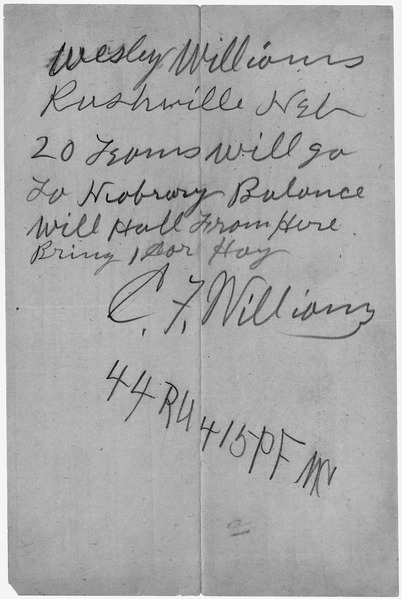 Wesley Williams
Rushville Neb
20 Teams will go
To Niobrary Balance
Will Hall From Here
Bring 1 Car Hay
C. F. Williams
44 RU 415 PF